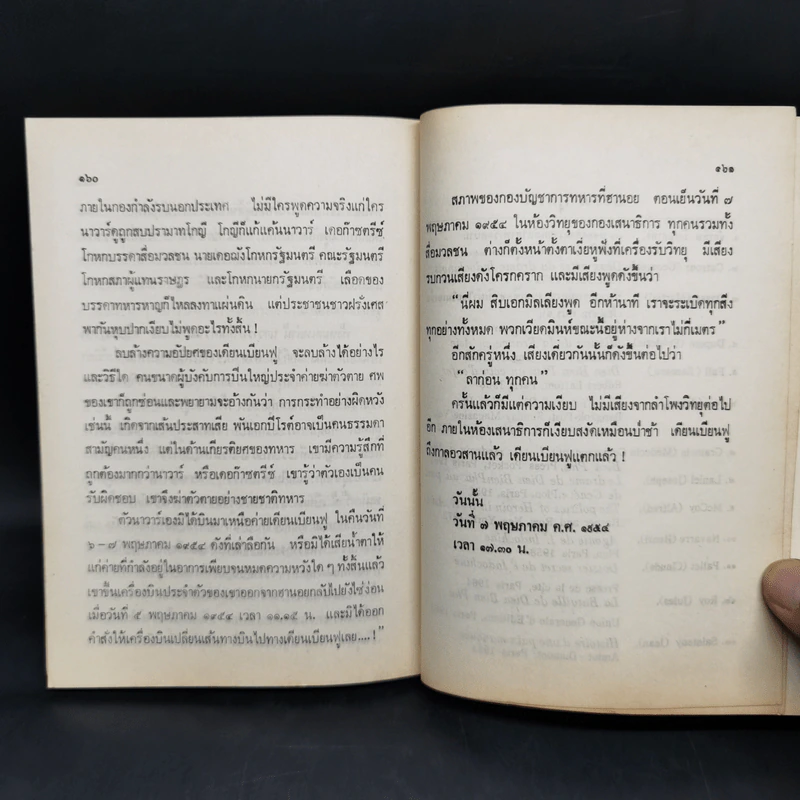 ๑๖๐
ภายในกองกำลังรบนอกประเทศ ไม่มีใครพูดความจริงแก่ใคร
นาวาร์ดูถูกสบประมาทโกญี โกญีก็แก้แค้นนาวาร์ เดอก๊าซตรีซ์
โกหกบรรดาสื่อมวลชน นายเดอฌังโกหกรัฐมนตรี คณะรัฐมนตรี
โกหกสภาผู้แทนราษฎร และโกหกนายกรัฐมนตรี เลือดของ
บรรดาทหารหาญก็ไหลลงทาแผ่นดิน แต่ประชาชนชาวฝรั่งเศส
พากันหุบปากเงียบไม่พูดอะไรทั้งสิ้น !
ลบล้างความอัปยศของเดียนเบียนฟู จะลบล้างได้อย่างไร
และวิธีใด คนขนาดผู้บังคับการปืนใหญ่ประจำค่ายฆ่าตัวตาย ศพ
ของเขาก็ถูกซ่อนและพยายามจะอ้างกันว่า การกระทำอย่างผิดหวัง
เช่นนี้ เกิดจากเส้นประสาทเสีย พันเอกปิโรต์อาจเป็นคนธรรมดา
สามัญคนหนึ่ง แต่ในด้านเกียรติยศของทหาร เขามีความรู้สึกที่
ถูกต้องมากกว่านาวาร์ หรือเดอก๊าซตรีซ์ เขารู้ว่าตัวเองเป็นคน
รับผิดชอบ เขาจึงฆ่าตัวตายอย่างชายชาติทหาร
ตัวนาวาร์เองมิได้บินมาเหนือค่ายเดียนเบียนฟู ในคืนวันที่
๖–๗ พฤษภาคม ๑๙๕๔ ดังที่เล่าลือกัน หรือมิได้เสียน้ำตาให้
แก่ค่ายที่กำลังอยู่ในอาการเพียบจนหมดความหวังใด ๆ ทั้งสิ้นแล้ว
เขาขึ้นเครื่องบินประจำตัวของเขาออกจากฮานอยกลับไปยังไซ่ง่อน
เมื่อวันที่ ๕ พฤษภาคม ๑๙๕๔ เวลา ๑๑.๑๕ น. และมิได้ออก
คำสั่งให้เครื่องบินเปลี่ยนเส้นทางบินไปทางเดียนเบียนฟูเลย....!"
๑๖๑
สภาพของกองบัญชาการทหารที่ฮานอย ตอนเย็นวันที่ ๗
พฤษภาคม ๑๙๕๔ ในห้องวิทยุของกองเสนาธิการ ทุกคนรวมทั้ง
สื่อมวลชน ต่างก็ตั้งหน้าตั้งตาเงี่ยหูฟังที่เครื่องรับวิทยุ มีเสียง
รบกวนเสียงดังโครกคราก และมีเสียงพูดดังขึ้นว่า
"นี่ผม สิบเอกมิลเลียงพูด อีกห้านาที เราจะระเบิดทุกสิ่ง
ทุกอย่างทั้งหมด พวกเวียดมินห์ขณะนี้อยู่ห่างจากเราไม่กี่เมตร"
อีกสักครู่หนึ่ง เสียงเดียวกันนั้นก็ดังขึ้นต่อไปว่า
"ลาก่อน ทุกคน"
ครั้นแล้วก็มีแต่ความเงียบ ไม่มีเสียงจากลำโพงวิทยุต่อไป
อีก ภายในห้องเสนาธิการก็เงียบสงัดเหมือนป่าช้า เดียนเบียนฟู
ถึงกาลอวสานแล้ว เดียนเบียนฟูแตกแล้ว !
วันนั้น
วันที่ ๗ พฤษภาคม ค.ศ. ๑๙๕๔
เวลา ๑๗.๓๐ น.